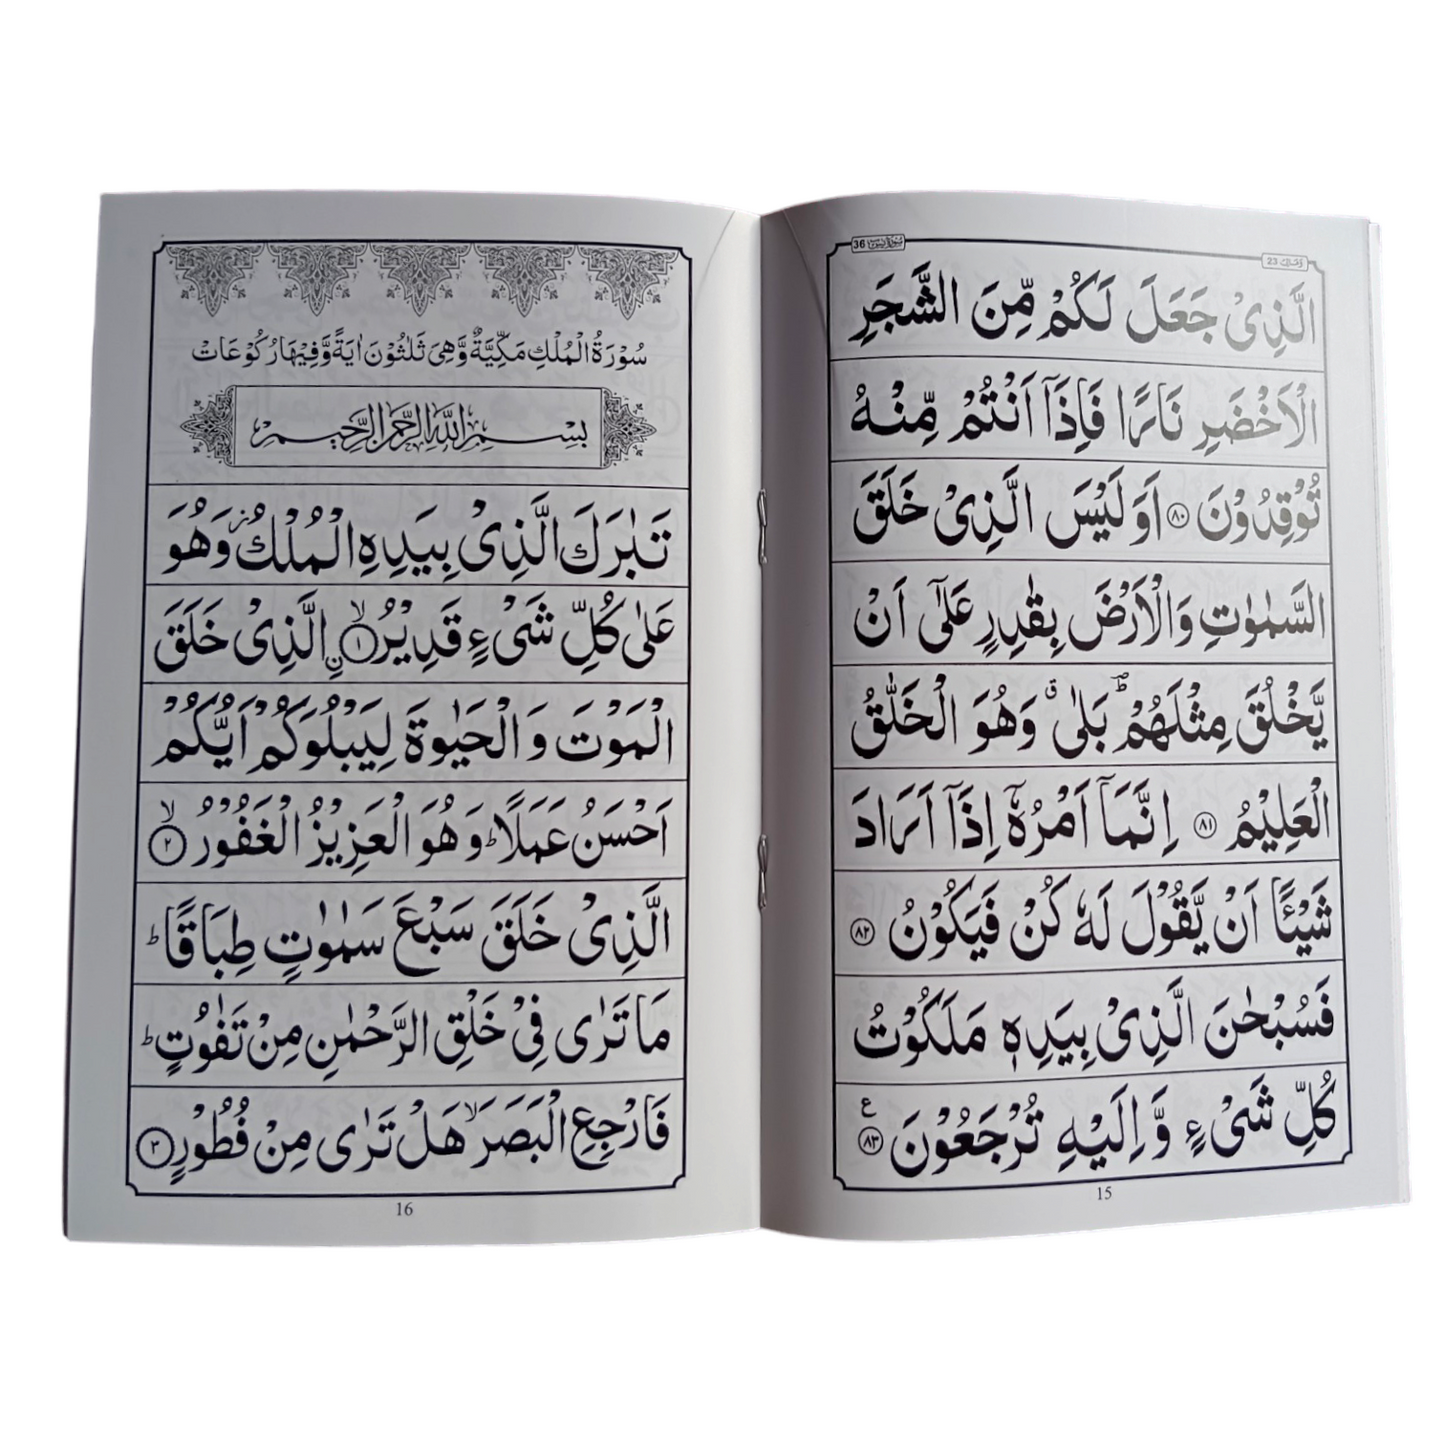 سورة يس 36
وَمَالِيَ 23
الَّذِىْ جَعَلَ لَكُمْ مِّنَ الشَّجَرِ
الْاَخْضَرِ نَارًا فَاِذَآ اَنْتُمْ مِّنْهُ
تُوْقِدُوْنَ ﴿۸۰﴾ اَوَلَيْسَ الَّذِىْ خَلَقَ
السَّمٰوٰتِ وَالْاَرْضَ بِقٰدِرٍ عَلٰٓى اَنْ
يَّخْلُقَ مِثْلَهُمْ ؕ بَلٰى ۗ وَهُوَ الْخَلّٰقُ
الْعَلِيْمُ ﴿۸۱﴾ اِنَّمَآ اَمْرُهٗٓ اِذَآ اَرَادَ
شَيْـًٔا اَنْ يَّقُوْلَ لَهٗ كُنْ فَيَكُوْنُ ﴿۸۲﴾
فَسُبْحٰنَ الَّذِىْ بِيَدِهٖ مَلَكُوْتُ
كُلِّ شَىْءٍ وَّاِلَيْهِ تُرْجَعُوْنَ ﴿۸۳﴾ ع
15
سُوْرَةُ الْمُلْكِ مَكِّيَّةٌ وَّهِىَ ثَلٰثُوْنَ اٰيَةً وَّفِيْهَا رُكُوْعَاتْ
بِسْمِ اللهِ الرَّحْمٰنِ الرَّحِيْمِ
تَبٰرَكَ الَّذِىْ بِيَدِهِ الْمُلْكُ ز وَهُوَ
عَلٰى كُلِّ شَىْءٍ قَدِيْرُ ۙ﴿۱﴾ نِ الَّذِىْ خَلَقَ
الْمَوْتَ وَالْحَيٰوةَ لِيَبْلُوَكُمْ اَيُّكُمْ
اَحْسَنُ عَمَلًا ؕ وَهُوَ الْعَزِيْزُ الْغَفُوْرُ ۙ﴿۲﴾
الَّذِىْ خَلَقَ سَبْعَ سَمٰوٰتٍ طِبَاقًا ؕ
مَا تَرٰى فِىْ خَلْقِ الرَّحْمٰنِ مِنْ تَفٰوُتٍ ؕ
فَارْجِعِ الْبَصَرَ ۙ هَلْ تَرٰى مِنْ فُطُوْرٍ ﴿۳﴾
16